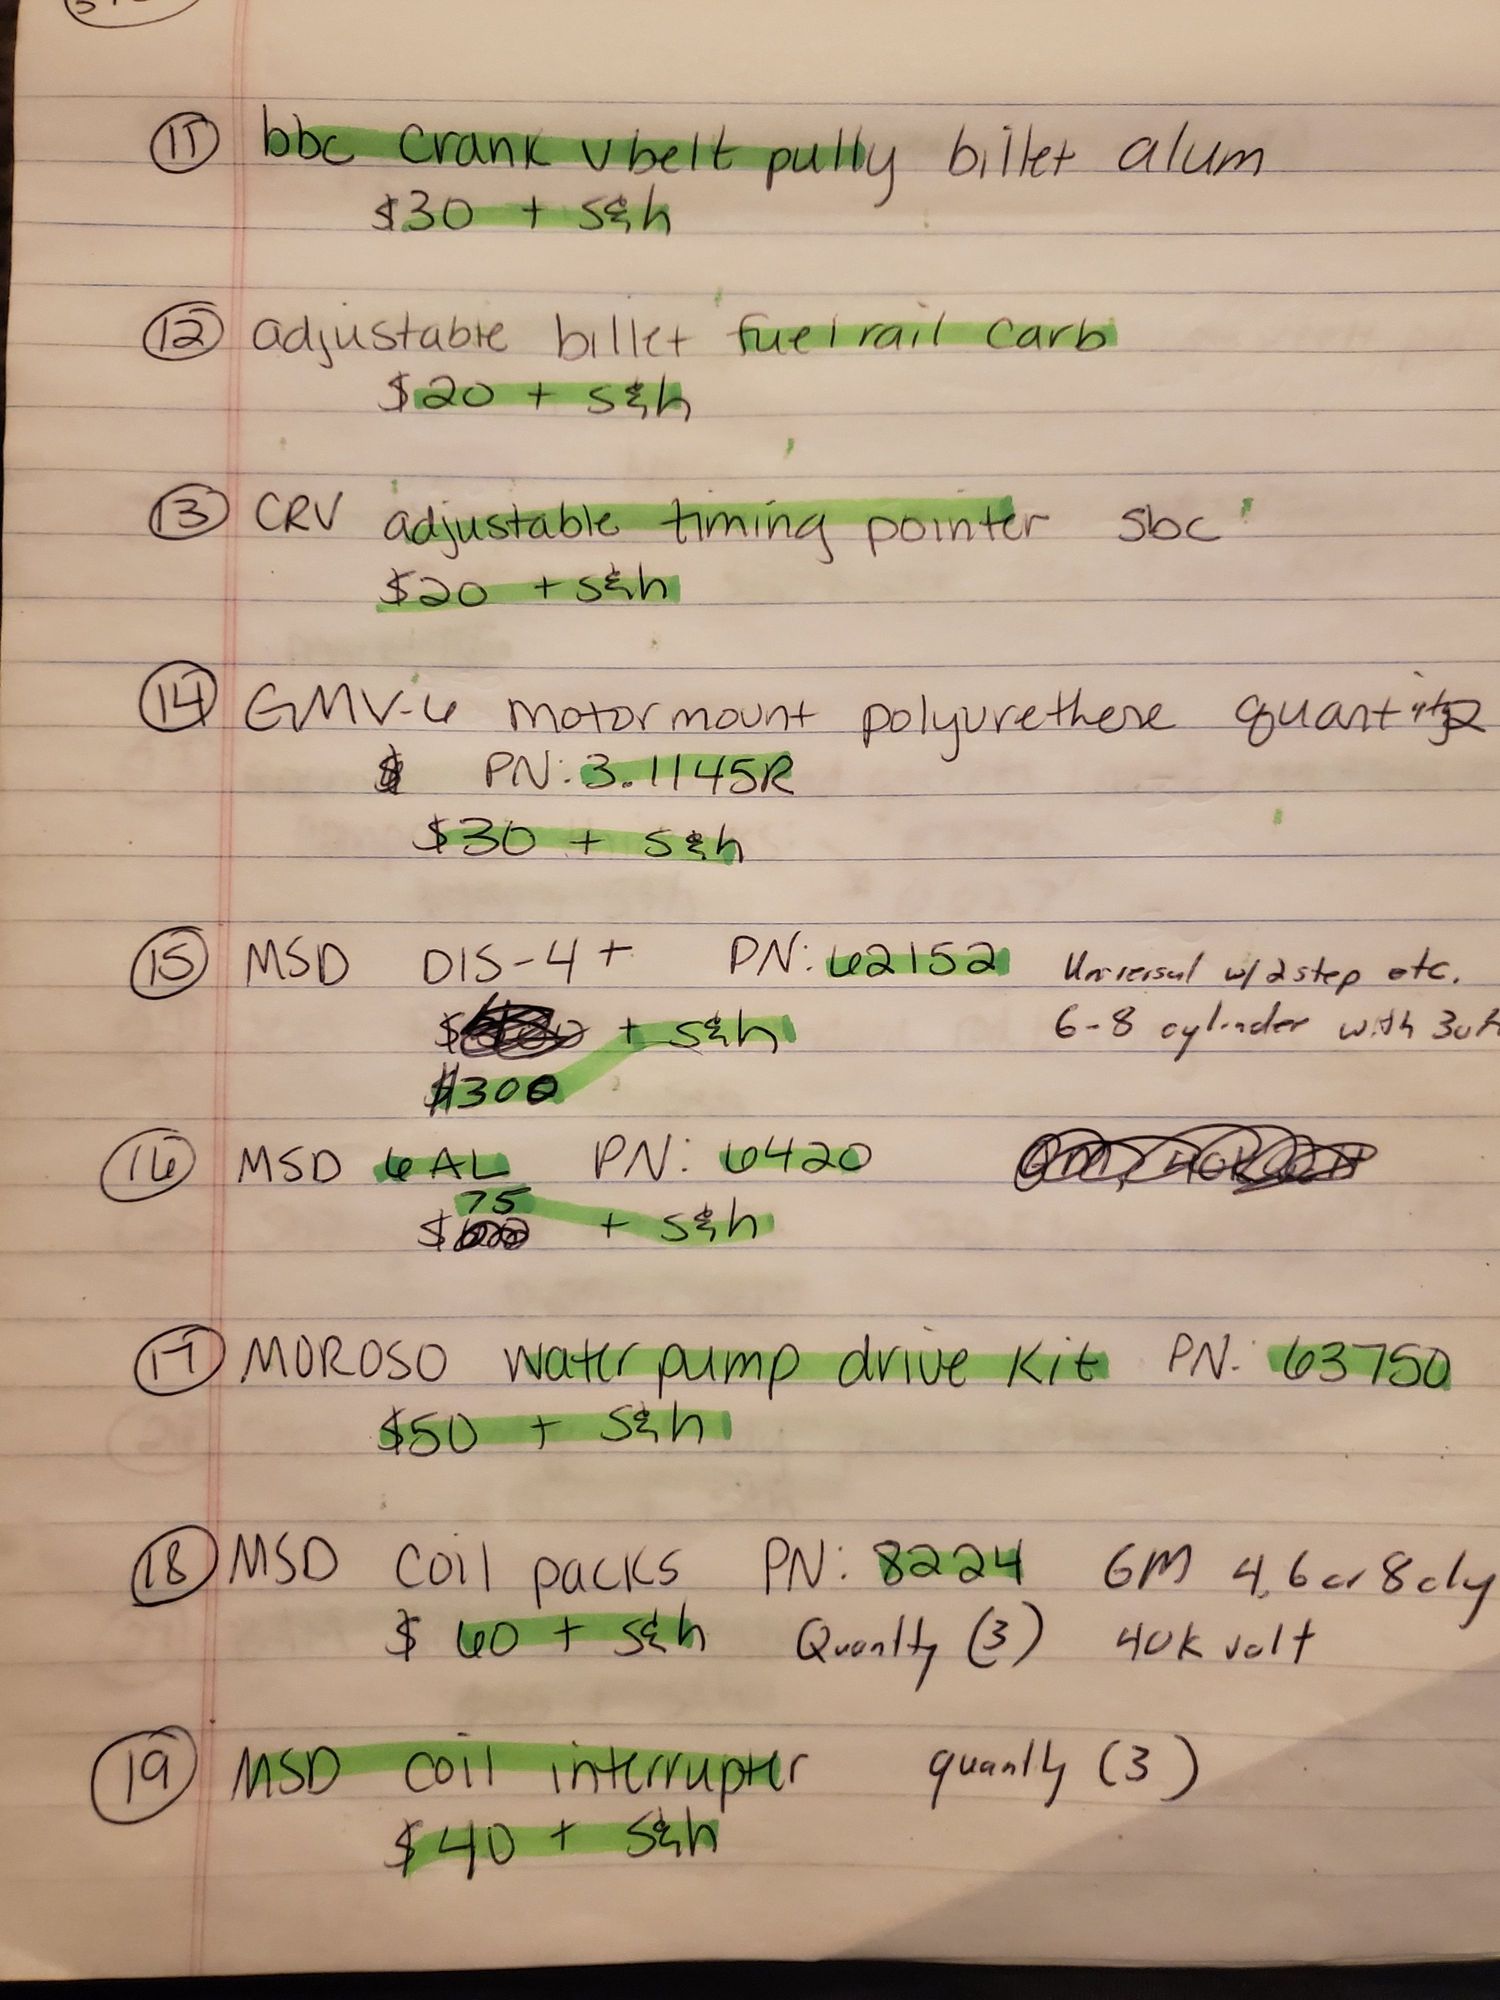 11 bbc crank v belt pully billet alum
$30 + s&h
12 adjustable billet fuel rail carb
$20 + s&h
13 CRV adjustable timing pointer sbc
$20 + s&h
14 GMV-6 motor mount polyurethene quantity 2
$ PN: 3.1145R
$30 + s&h
15 MSD DIS-4+ PN: 62152 Universal w/ 2 step etc.
+ s&h 6-8 cylinder with
$300
16 MSD 6AL PN: 6420
75
$ + s&h
17 MOROSO water pump drive kit PN: 63750
$50 + s&h
18 MSD coil packs PN: 8224 GM 4, 6 or 8 cly
$60 + s&h Quantty (3) 40K volt
19 MSD coil interrupter quantty (3)
$40 + s&h